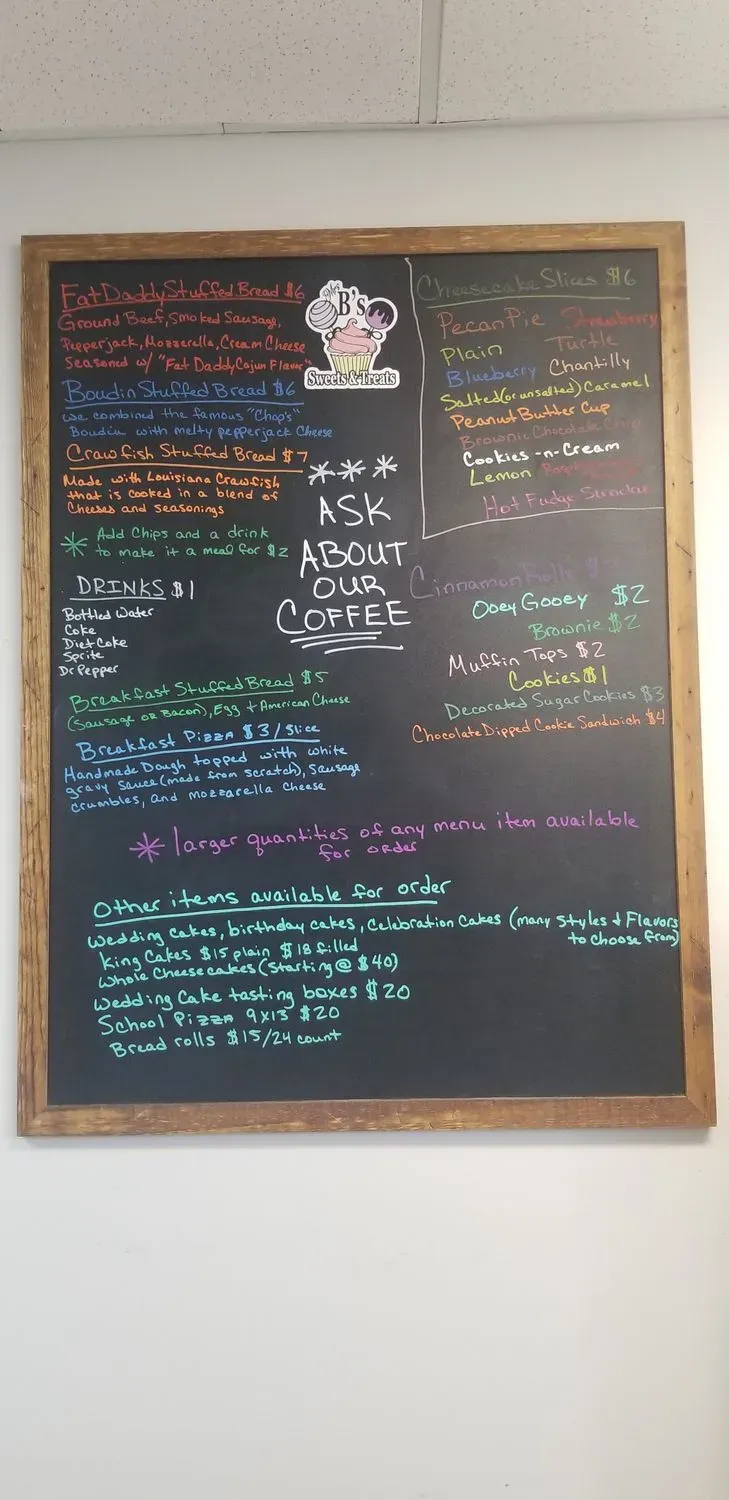 Fat Daddy Stuffed Bread $6
Ground Beef, Smoked Sausage,
Pepperjack, Mozzerella, Cream Cheese
Seasoned w/ "Fat Daddy Cajun Flavor"
Boudin Stuffed Bread $6
We combined the famous "Chop's"
Boudin with melty pepperjack Cheese
Crawfish Stuffed Bread $7
Made with Louisiana Crawfish
that is cooked in a blend of
Cheeses and seasonings
* Add Chips and a drink
to make it a meal for $2
DRINKS $1
Bottled Water
Coke
Diet Coke
Sprite
Dr Pepper
Breakfast Stuffed Bread $5
(Sausage OR Bacon), Egg + American Cheese
Breakfast Pizza $3/Slice
Handmade Dough topped with white
gravy sauce (made from scratch), Sausage
crumbles, and mozzarella Cheese
B's
Sweets & Treats
***
ASK
ABOUT
OUR
COFFEE
Cheesecake Slices $6
Pecan Pie Strawberry
Plain Turtle
Blueberry Chantilly
Salted (or unsalted) Caramel
Peanut Butter Cup
Brownie Chocolate Chip
Cookies-n-Cream
Lemon Raspberry
Hot Fudge Sundae
Cinnamon Rolls
Ooey Gooey $2
Brownie $2
Muffin Tops $2
Cookies $1
Decorated Sugar Cookies $3
Chocolate Dipped Cookie Sandwich $4
* larger quantities of any menu item available
for order
Other items available for order
Wedding cakes, birthday cakes, Celebration Cakes (many Styles & Flavors
to choose from)
King Cakes $15 plain $18 filled
Whole Cheesecakes (Starting @ $40)
Wedding Cake tasting boxes $20
School Pizza 9x13 $20
Bread rolls $15/24 count